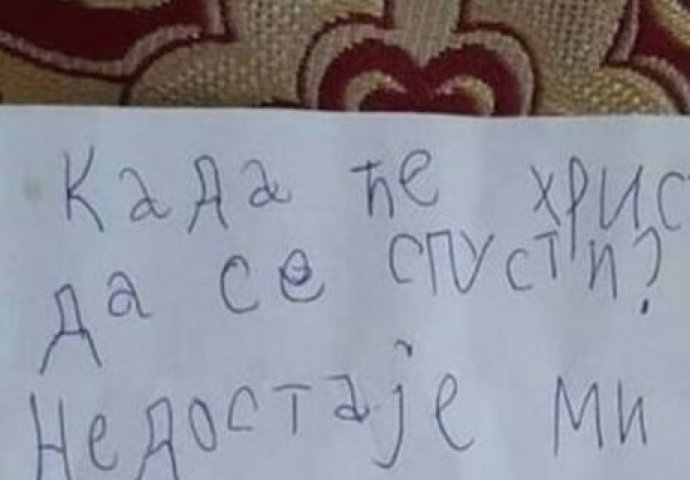 Када ће христ
да се спусти?
Недостаје ми